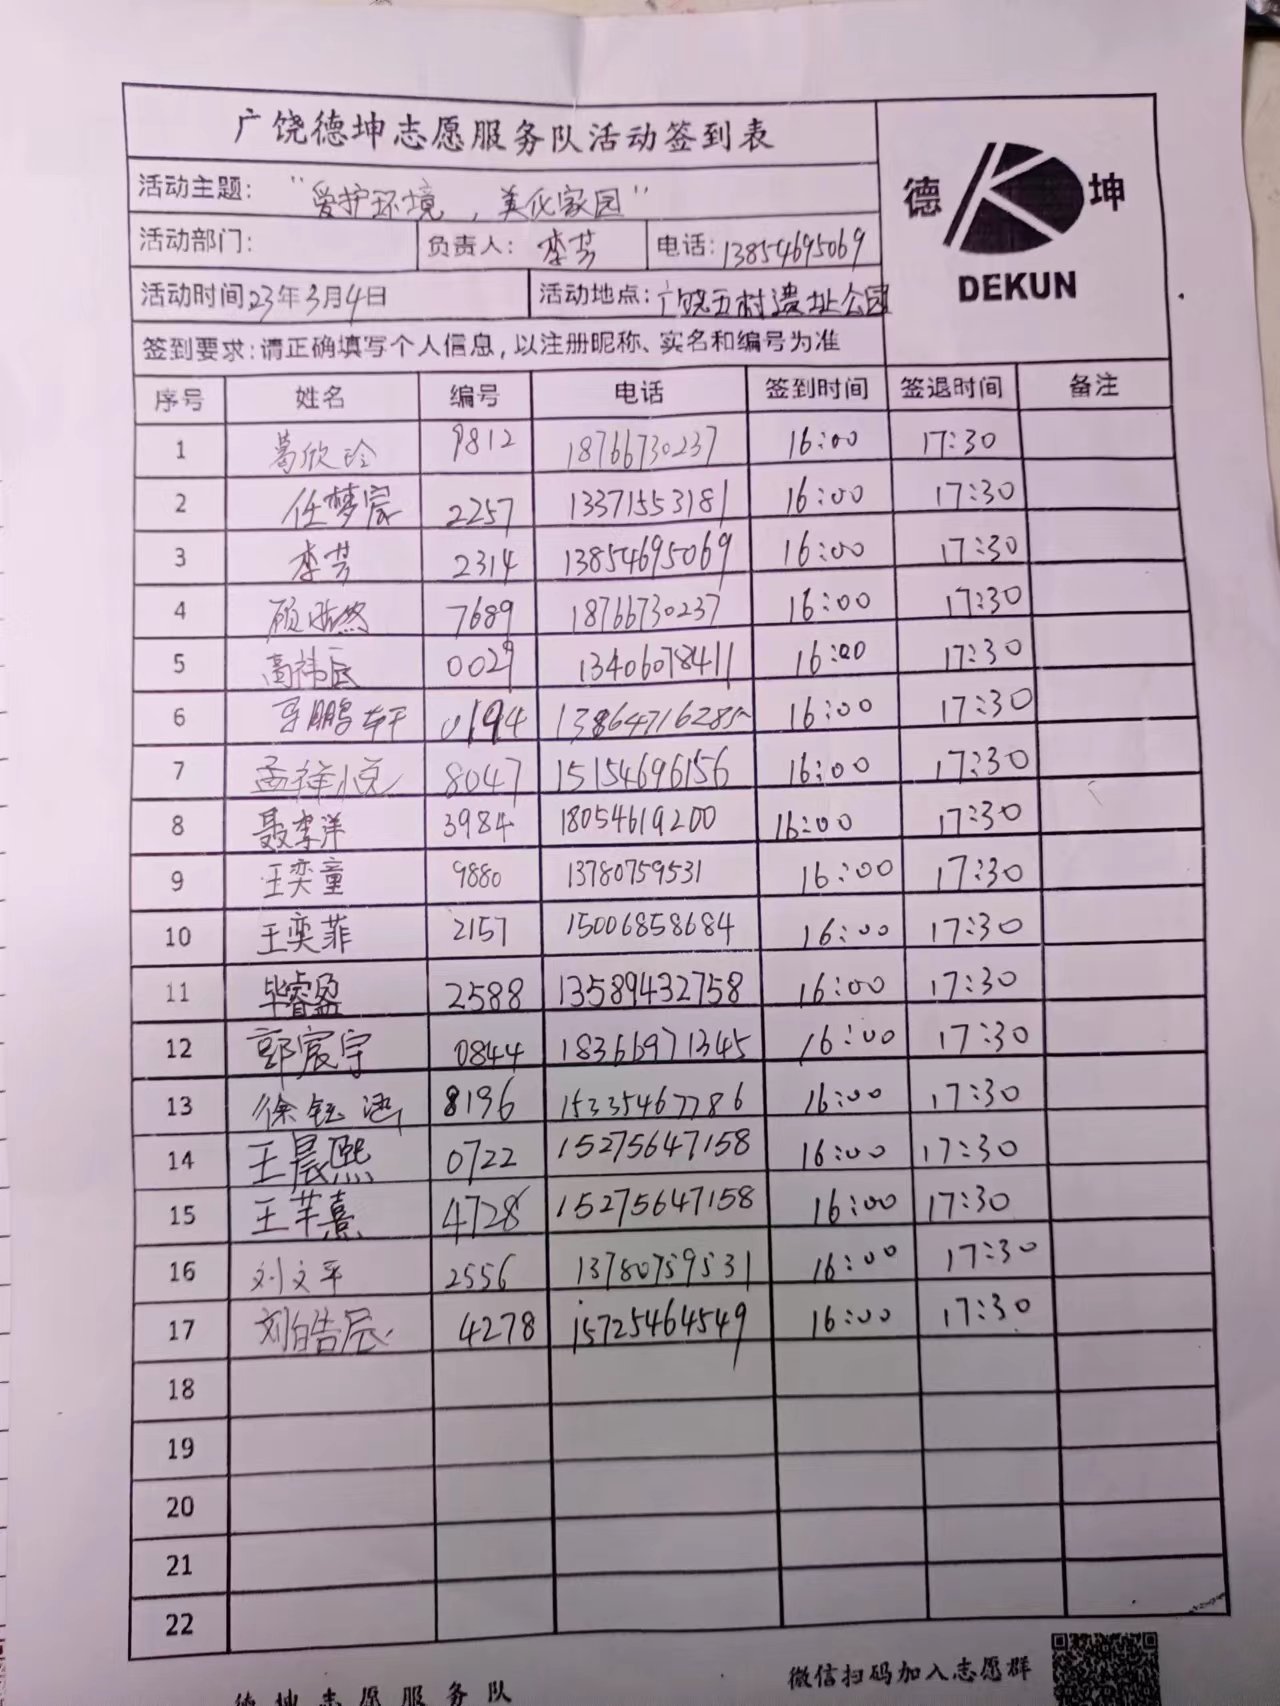 广饶德坤志愿服务队活动签到表
德 坤
DEKUN
活动主题: "爱护环境,美化家园"
活动部门: 负责人: 李芳 电话: 13854695069
活动时间 23年3月4日 活动地点: 广饶五村遗址公园
签到要求:请正确填写个人信息,以注册昵称、实名和编号为准
序号 姓名 编号 电话 签到时间 签退时间 备注
1 葛欣玲 9812 18766730237 16:00 17:30
2 任梦宸 2257 13371553181 16:00 17:30
3 李芳 2314 13854695069 16:00 17:30
4 顾浩然 7689 18766730237 16:00 17:30
5 高祎辰 0029 13406078411 16:00 17:30
6 鹏轩 0194 16:00 17:30
7 孟祥悦 8047 15154696156 16:00 17:30
8 聂李洋 3984 18054619200 16:00 17:30
9 王奕童 9880 13780759531 16:00 17:30
10 王奕菲 2157 15006858684 16:00 17:30
11 毕睿盈 2588 13589432758 16:00 17:30
12 郭宸宇 0844 18366971345 16:00 17:30
13 徐钰涵 8196 15335467786 16:00 17:30
14 王晨熙 0722 15275647158 16:00 17:30
15 王芊熹 4728 15275647158 16:00 17:30
16 刘文平 2556 13780759531 16:00 17:30
17 刘皓辰 4278 15725464549 16:00 17:30
18
19
20
21
22
德坤志愿服务队
微信扫码加入志愿群